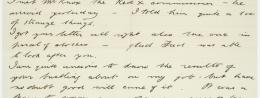 I met McK the Red X commissioner – he
arrived yesterday I told him quite a lot
of strange things.
I got your letter all right also the one in
parcel of clothes – glad Fred was able
to look after you.
I am quite anxious to know the results of
your talking about on my job – but have
no doubt good will come of it. It was a